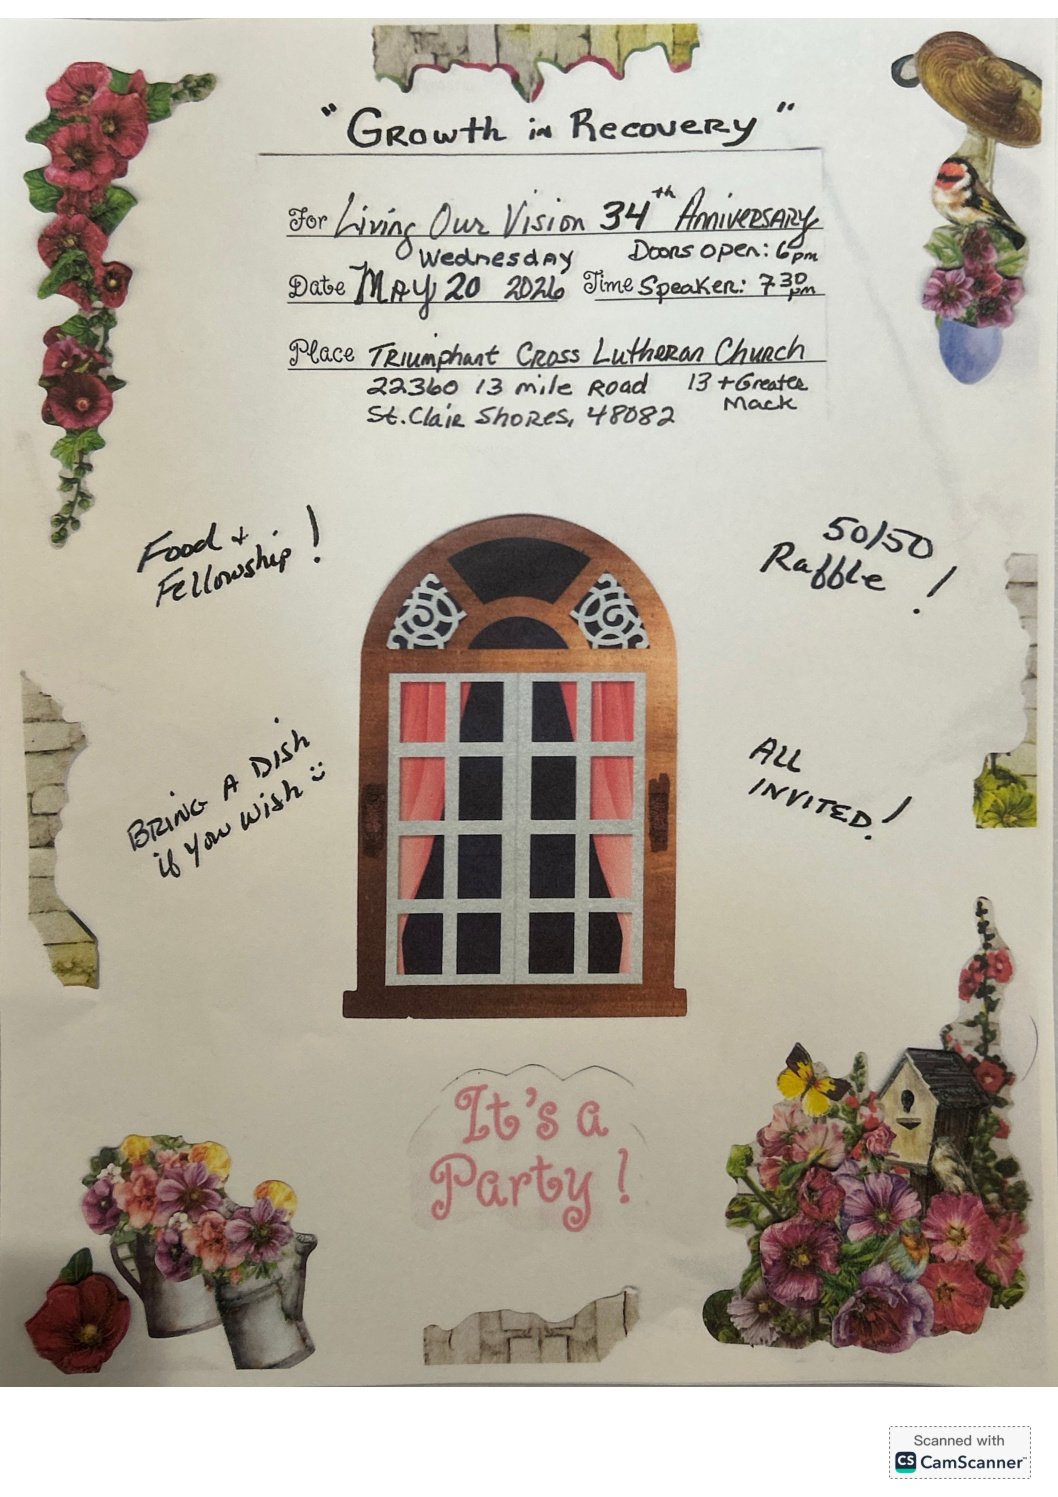 "Growth in Recovery"
For Living Our Vision 34th Anniversary
Wednesday Doors open: 6pm
Date May 20 2026 Time Speaker: 7 30 pm
Place Triumphant Cross Lutheran Church
22360 13 mile Road 13 + Greater Mack
St. Clair Shores, 48082
Food + Fellowship!
50/50 Raffle!
Bring A Dish if you wish :)
All Invited!
It's a
Party!
Scanned with
CS CamScanner